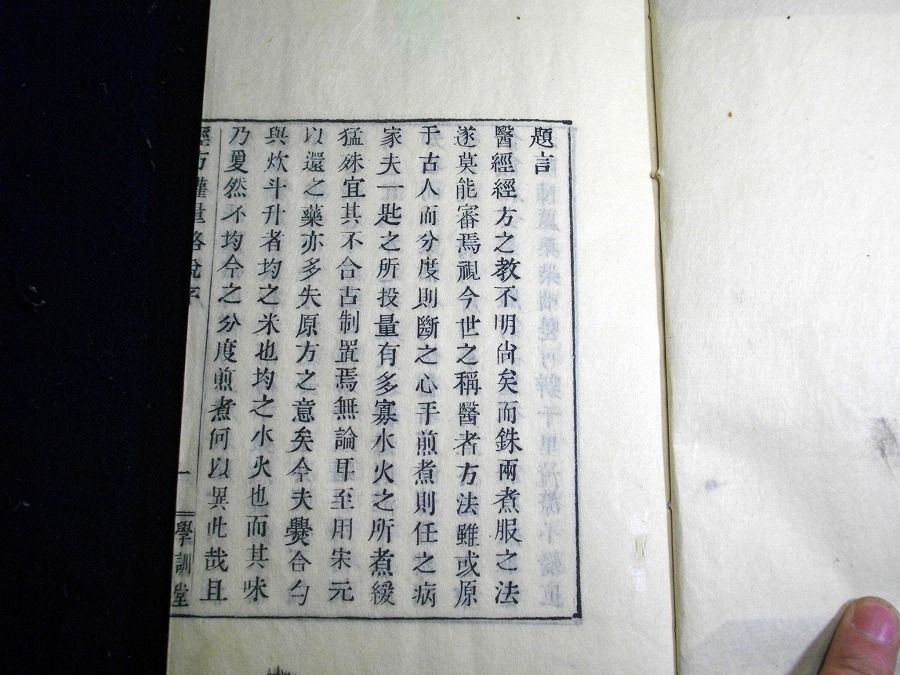 題言
醫經經方之教不明尙矣而銖兩煮服之法
遂莫能審焉視今世之稱醫者方法雖或原
于古人而分度則斷之心手煎煮則任之病
家夫一匙之所投量有多寡水火之所煮緩
猛殊宜其不合古制置焉無論耳至用宋元
以還之藥亦多失原方之意矣今夫爨合勺
與炊斗升者均之米也均之水火也而其味
乃戛然不均今之分度煎煮何以異此哉且
經方權量略說序
一
學訓堂